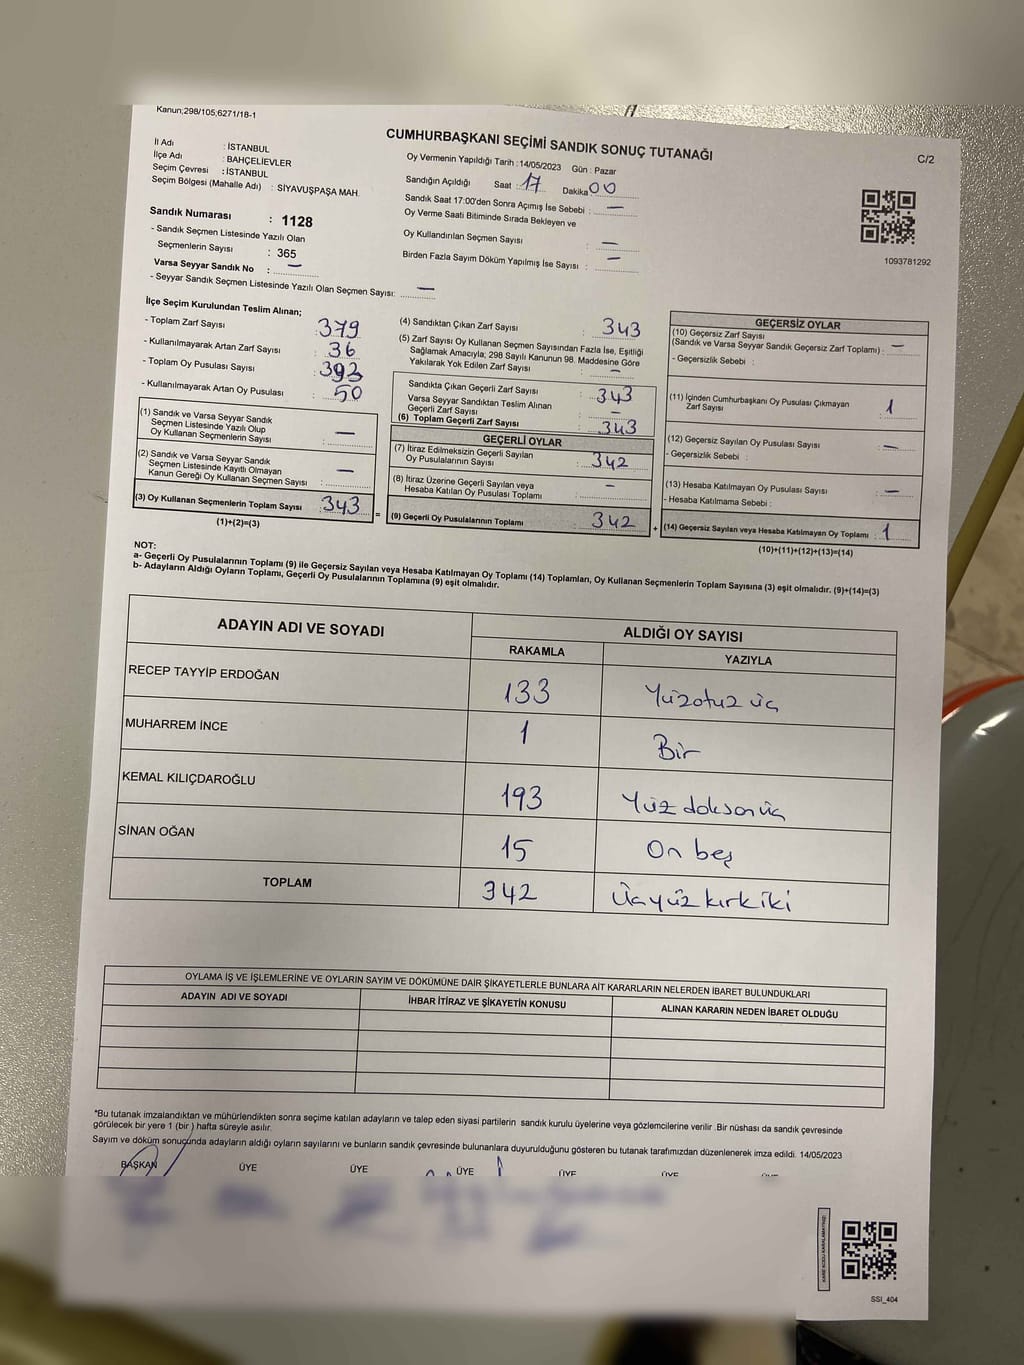 Kanun;298/105;6271/18-1
CUMHURBAŞKANI SEÇİMİ SANDIK SONUÇ TUTANAĞI
C/2
İl Adı : İSTANBUL
İlçe Adı : BAHÇELİEVLER
Seçim Çevresi : İSTANBUL
Seçim Bölgesi (Mahalle Adı) : SİYAVUŞPAŞA MAH.
Oy Vermenin Yapıldığı Tarih : 14/05/2023 Gün : Pazar
Sandığın Açıldığı Saat : 17 Dakika 00
Sandık Saat 17:00'den Sonra Açımış İse Sebebi : —
Oy Verme Saati Bitiminde Sırada Bekleyen ve
Oy Kullandırılan Seçmen Sayısı : —
Birden Fazla Sayım Döküm Yapılmış İse Sayısı : —
1093781292
Sandık Numarası : 1128
- Sandık Seçmen Listesinde Yazılı Olan
Seçmenlerin Sayısı : 365
Varsa Seyyar Sandık No : —
- Seyyar Sandık Seçmen Listesinde Yazılı Olan Seçmen Sayısı: —
İlçe Seçim Kurulundan Teslim Alınan;
- Toplam Zarf Sayısı : 379
- Kullanılmayarak Artan Zarf Sayısı : 36
- Toplam Oy Pusulası Sayısı : 393
- Kullanılmayarak Artan Oy Pusulası : 50
(1) Sandık ve Varsa Seyyar Sandık
Seçmen Listesinde Yazılı Olup
Oy Kullanan Seçmenlerin Sayısı : —
(2) Sandık ve Varsa Seyyar Sandık
Seçmen Listesinde Kayıtlı Olmayan
Kanun Gereği Oy Kullanan Seçmen Sayısı : —
(3) Oy Kullanan Seçmenlerin Toplam Sayısı : 343
(1)+(2)=(3)
=
(4) Sandıktan Çıkan Zarf Sayısı : 343
(5) Zarf Sayısı Oy Kullanan Seçmen Sayısından Fazla İse, Eşitliği
Sağlamak Amacıyla; 298 Sayılı Kanunun 98. Maddesine Göre
Yakılarak Yok Edilen Zarf Sayısı : —
Sandıkta Çıkan Geçerli Zarf Sayısı : 343
Varsa Seyyar Sandıktan Teslim Alınan
Geçerli Zarf Sayısı : —
(6) Toplam Geçerli Zarf Sayısı : 343
GEÇERLİ OYLAR
(7) İtiraz Edilmeksizin Geçerli Sayılan
Oy Pusulalarının Sayısı : 342
(8) İtiraz Üzerine Geçerli Sayılan veya
Hesaba Katılan Oy Pusulası Toplamı : —
(9) Geçerli Oy Pusulalarının Toplamı : 342
+
GEÇERSİZ OYLAR
(10) Geçersiz Zarf Sayısı
(Sandık ve Varsa Seyyar Sandık Geçersiz Zarf Toplamı) : —
- Geçersizlik Sebebi :
(11) İçinden Cumhurbaşkanı Oy Pusulası Çıkmayan
Zarf Sayısı : 1
(12) Geçersiz Sayılan Oy Pusulası Sayısı : —
- Geçersizlik Sebebi :
(13) Hesaba Katılmayan Oy Pusulası Sayısı : —
- Hesaba Katılmama Sebebi :
(14) Geçersiz Sayılan veya Hesaba Katılmayan Oy Toplamı : 1
(10)+(11)+(12)+(13)=(14)
NOT:
a- Geçerli Oy Pusulalarının Toplamı (9) ile Geçersiz Sayılan veya Hesaba Katılmayan Oy Toplamı (14) Toplamları, Oy Kullanan Seçmenlerin Toplam Sayısına (3) eşit olmalıdır. (9)+(14)=(3)
b- Adayların Aldığı Oyların Toplamı, Geçerli Oy Pusulalarının Toplamına (9) eşit olmalıdır.
ADAYIN ADI VE SOYADI
ALDIĞI OY SAYISI
RAKAMLA YAZIYLA
RECEP TAYYİP ERDOĞAN 133 Yüzotuz üç
MUHARREM İNCE 1 Bir
KEMAL KILIÇDAROĞLU 193 Yüz doksan üç
SİNAN OĞAN 15 On beş
TOPLAM 342 Üçyüz kırk iki
OYLAMA İŞ VE İŞLEMLERİNE VE OYLARIN SAYIM VE DÖKÜMÜNE DAİR ŞİKAYETLERLE BUNLARA AİT KARARLARIN NELERDEN İBARET BULUNDUKLARI
ADAYIN ADI VE SOYADI İHBAR İTİRAZ VE ŞİKAYETİN KONUSU ALINAN KARARIN NEDEN İBARET OLDUĞU
*Bu tutanak imzalandıktan ve mühürlendikten sonra seçime katılan adayların ve talep eden siyasi partilerin sandık kurulu üyelerine veya gözlemcilerine verilir .Bir nüshası da sandık çevresinde
görülecek bir yere 1 (bir ) hafta süreyle asılır.
Sayım ve döküm sonucunda adayların aldığı oyların sayılarını ve bunların sandık çevresinde bulunanlara duyurulduğunu gösteren bu tutanak tarafımızdan düzenlenerek imza edildi. 14/05/2023
BAŞKAN ÜYE ÜYE ÜYE ÜYE ÜYE
KARE KODU KARALAMAYINIZ!
SSI_404